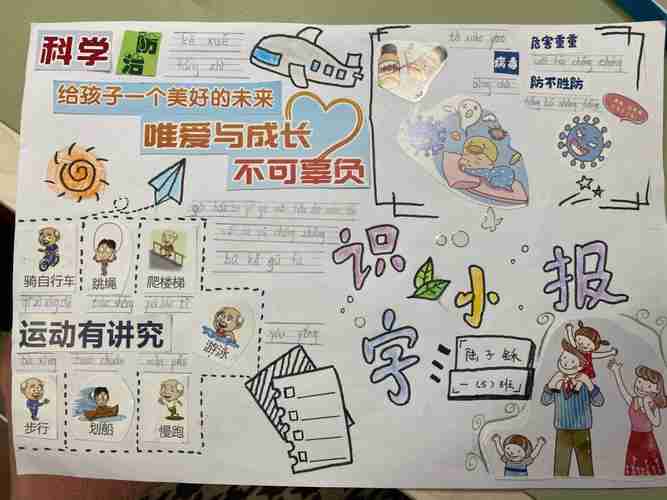 科学
防治
kē xué
fáng zhì
给孩子一个美好的未来
唯爱与成长
不可辜负
病毒
bìng dú
危害重重
wēi hài chóng chóng
防不胜防
fáng bù shèng fáng
识字小报
骑自行车
跳绳
爬楼梯
运动有讲究
游泳
yóu yǒng
步行
划船
慢跑
bù xíng
huá chuán
màn pǎo
一（5）班